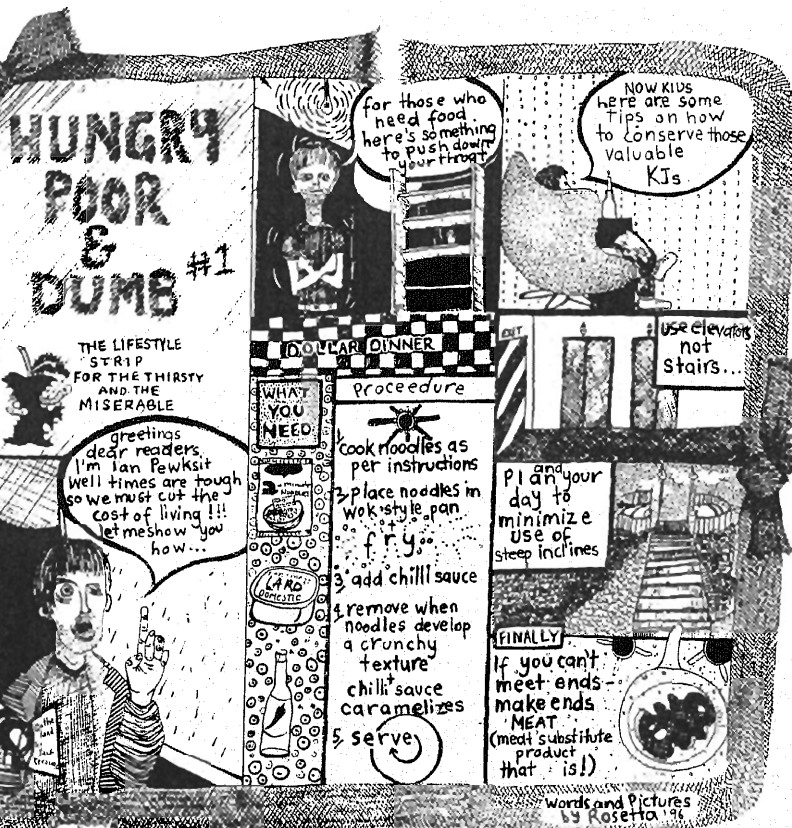 HUNGRY
POOR
&
DUMB #1
THE LIFESTYLE
STRIP
FOR THE THIRSTY
AND THE
MISERABLE
greetings
dear readers,
I'm Ian Pewksit
Well times are tough
so we must cut the
cost of living !!!
let me show you
how...
for those who
need food
here's something
to push down
your throat
DOLLAR DINNER
WHAT
YOU
NEED
2 minute
NOODLES
LARD
DOMESTIC
Proceedure
1, Cook noodles as
per instructions
2, place noodles in
wok style pan
+
fry..
3, add chilli sauce
4, remove when
noodles develop
a crunchy
texture
+
chilli sauce
caramelizes
5, serve
NOW KIDS
here are some
tips on how
to conserve those
valuable
KJs
EXIT
use elevators
not
stairs...
and
Plan your
day to
minimize
use of
steep inclines
FINALLY
If you can't
meet ends
make ends
MEAT
(meat substitute
product
that is!)
Words and Pictures
by Rosetta '96